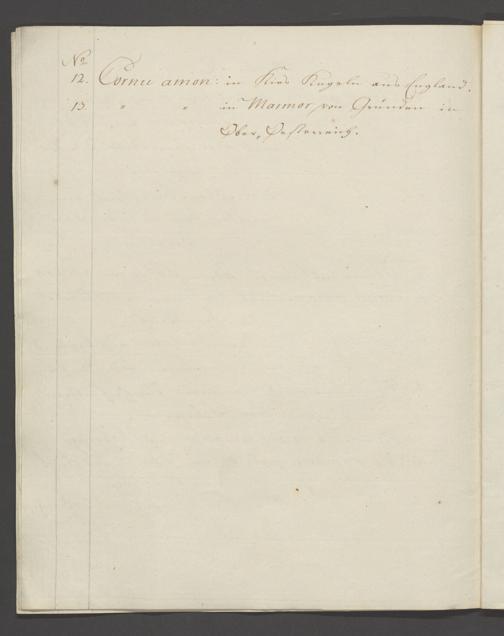 No
12. Cornu amon: in Kies Kugeln aus England.
13. " " in Marmor von Gmünden in
Ober, Oesterreich.